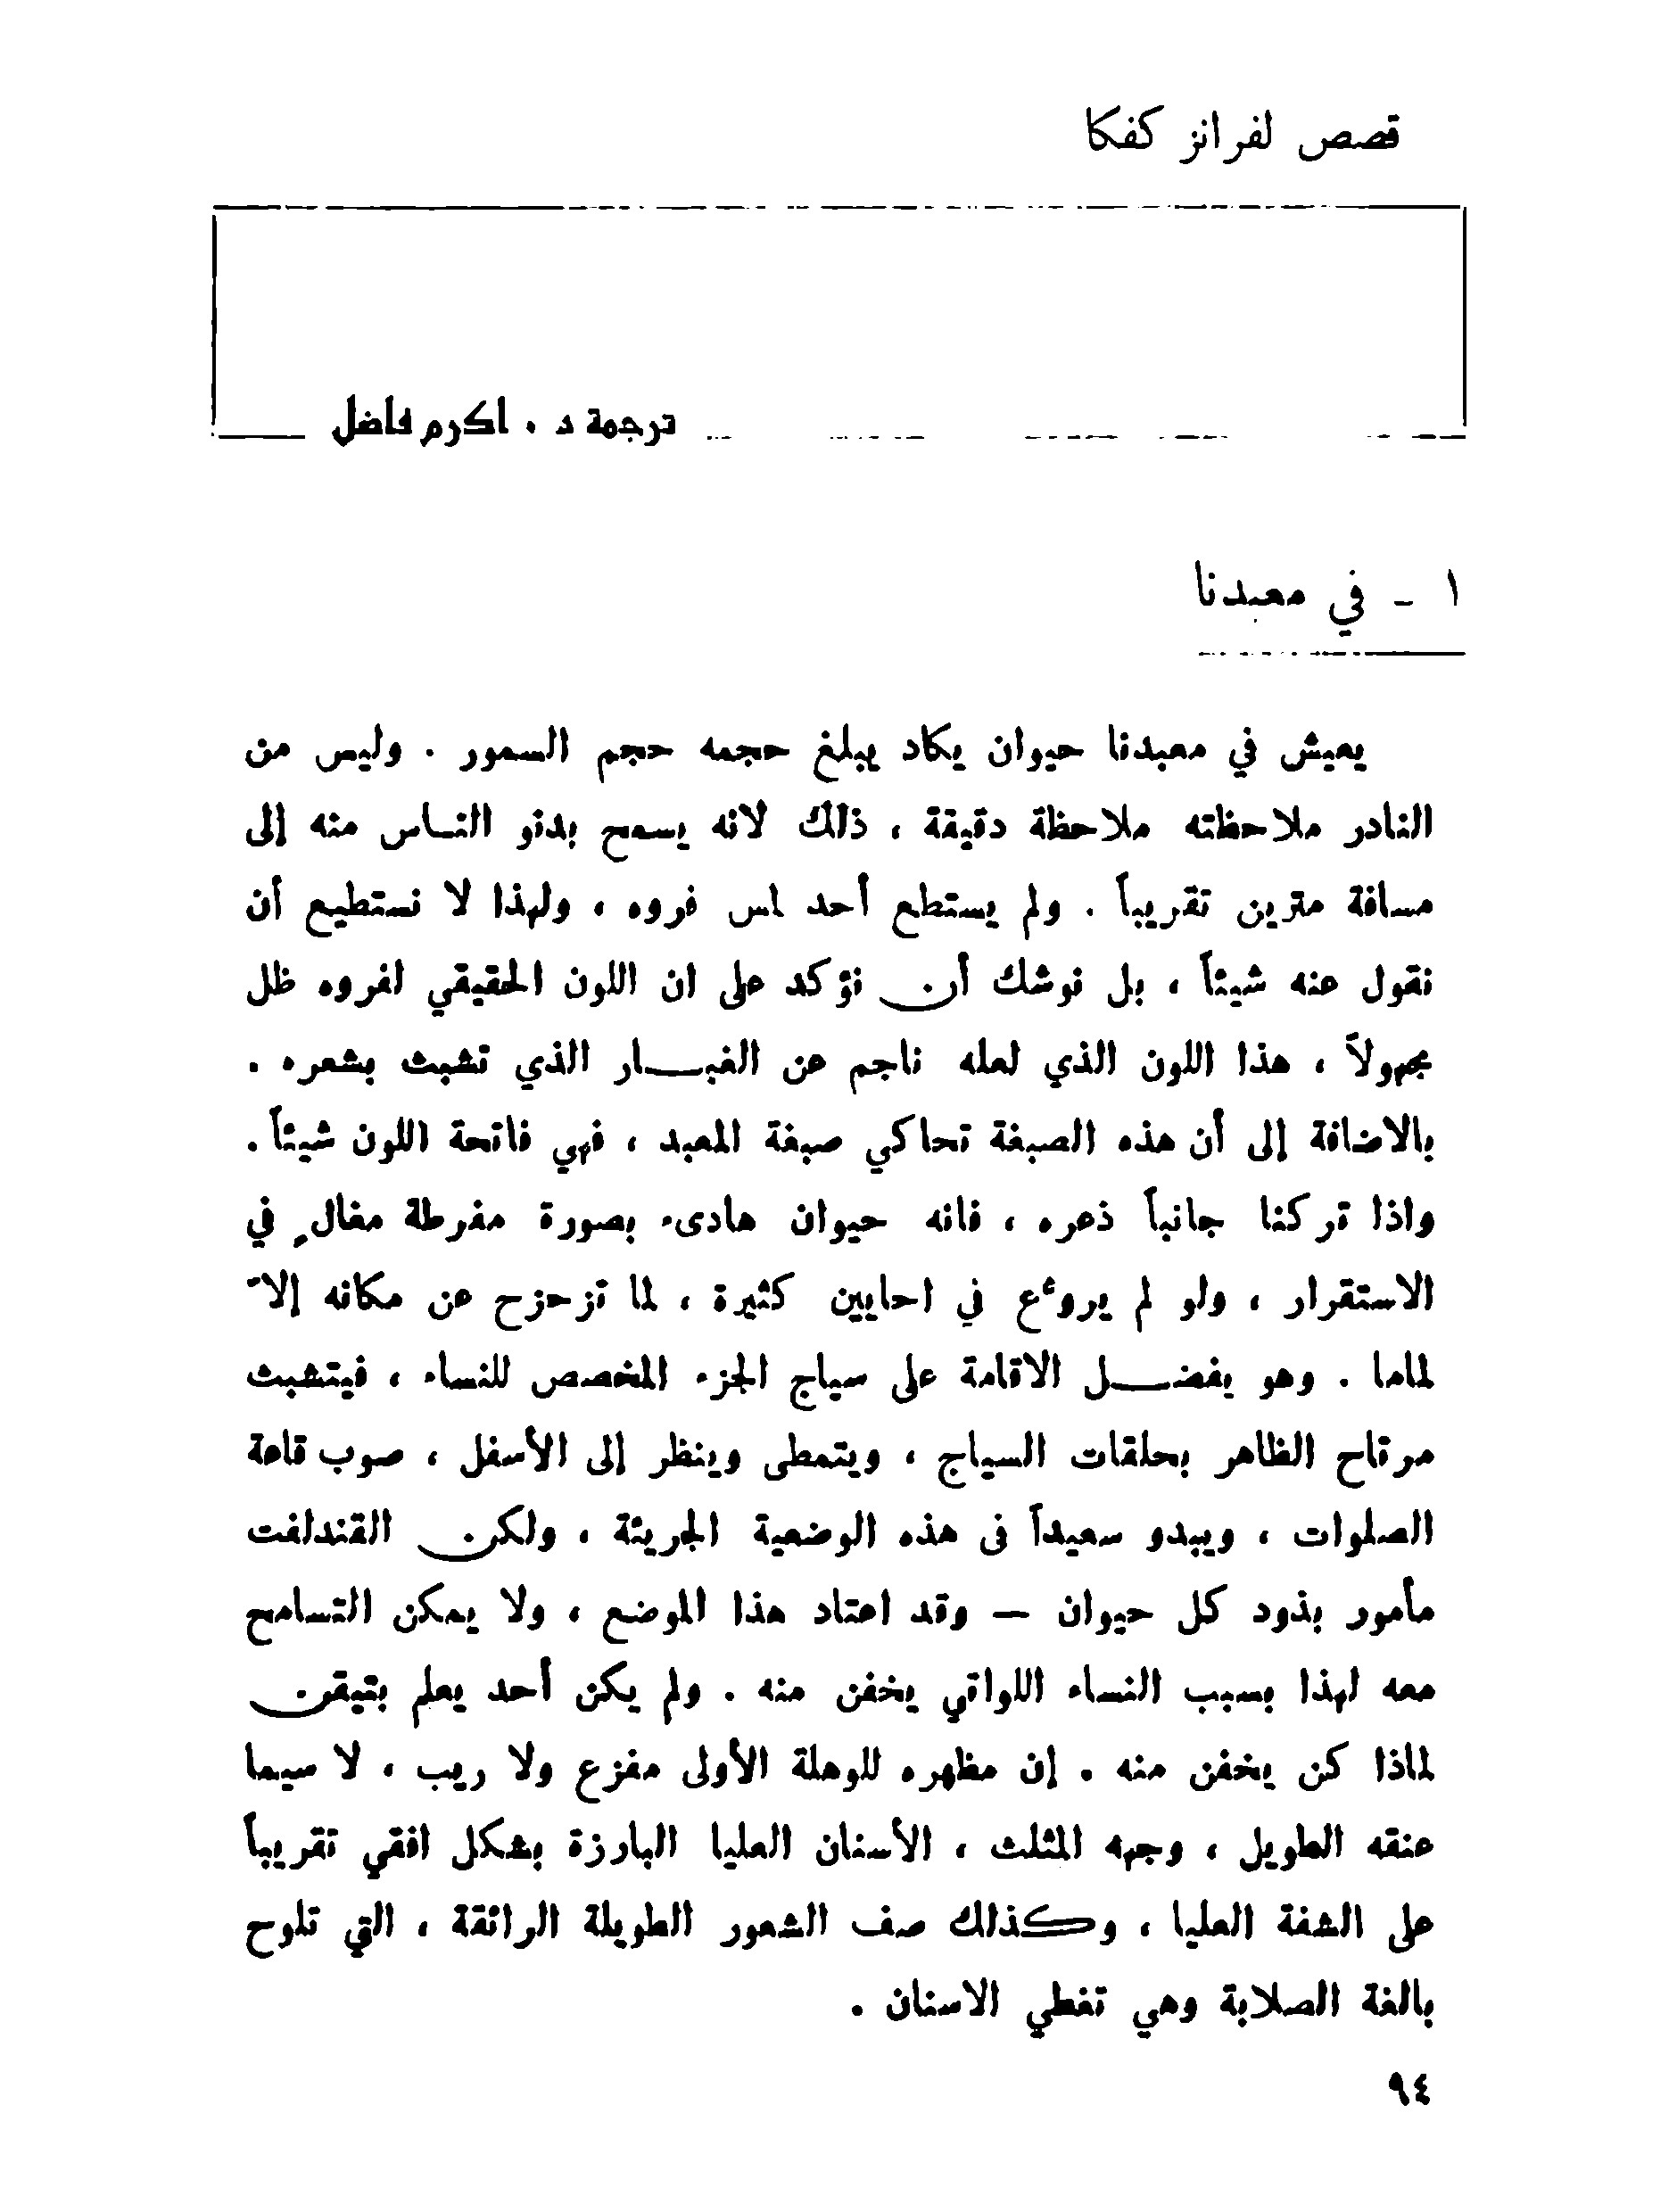 قصص لفرانز كفكا
ترجمة د . اكرم فاضل
١ - في معبدنا
يعيش في معبدنا حيوان يكاد يبلغ حجمه حجم السمور . وليس من
النادر ملاحظته ملاحظة دقيقة ، ذلك لانه يسمح بدنو النـاس منه إلى
مسافة مترين تقريباً . ولم يستطع أحد لمس فروه ، ولهذا لا نستطيع أن
نقول عنه شيئاً ، بل نوشك أن نؤكد على ان اللون الحقيقي لفروه ظل
مجهولاً ، هذا اللون الذي لعله ناجم عن الغبــار الذي تشبث بشعره .
بالاضافة إلى أن هذه الصبغة تحاكي صبغة المعبد ، فهي فاتحة اللون شيئاً .
واذا تركنا جانباً ذعره ، فانه حيوان هادىء بصورة مفرطة مغالٍ في
الاستقرار ، ولو لم يروّع في احايين كثيرة ، لما تزحزح عن مكانه إلاّ
لماما . وهو يفضــل الاقامة على سياج الجزء المخصص للنساء ، فيتشبث
مرتاح الظاهر بحلقات السياج ، ويتمطى وينظر إلى الأسفل ، صوب قاعة
الصلوات ، ويبدو سعيداً فى هذه الوضعية الجريئة ، ولكن القندلفت
مأمور بذود كل حيوان – وقد اعتاد هذا الموضع ، ولا يمكن التسامح
معه لهذا بسبب النساء اللواتي يخفن منه . ولم يكن أحد يعلم بتيقن
لماذا كن يخفن منه . إن مظهره للوهلة الأولى مفزع ولا ريب ، لا سيما
عنقه الطويل ، وجهه المثلث ، الأسنان العليا البارزة بشكل افقي تقريباً
على الشفة العليا ، وكذلك صف الشعور الطويلة الرائقة ، التي تلوح
بالغة الصلابة وهي تغطي الاسنان .
٩٤